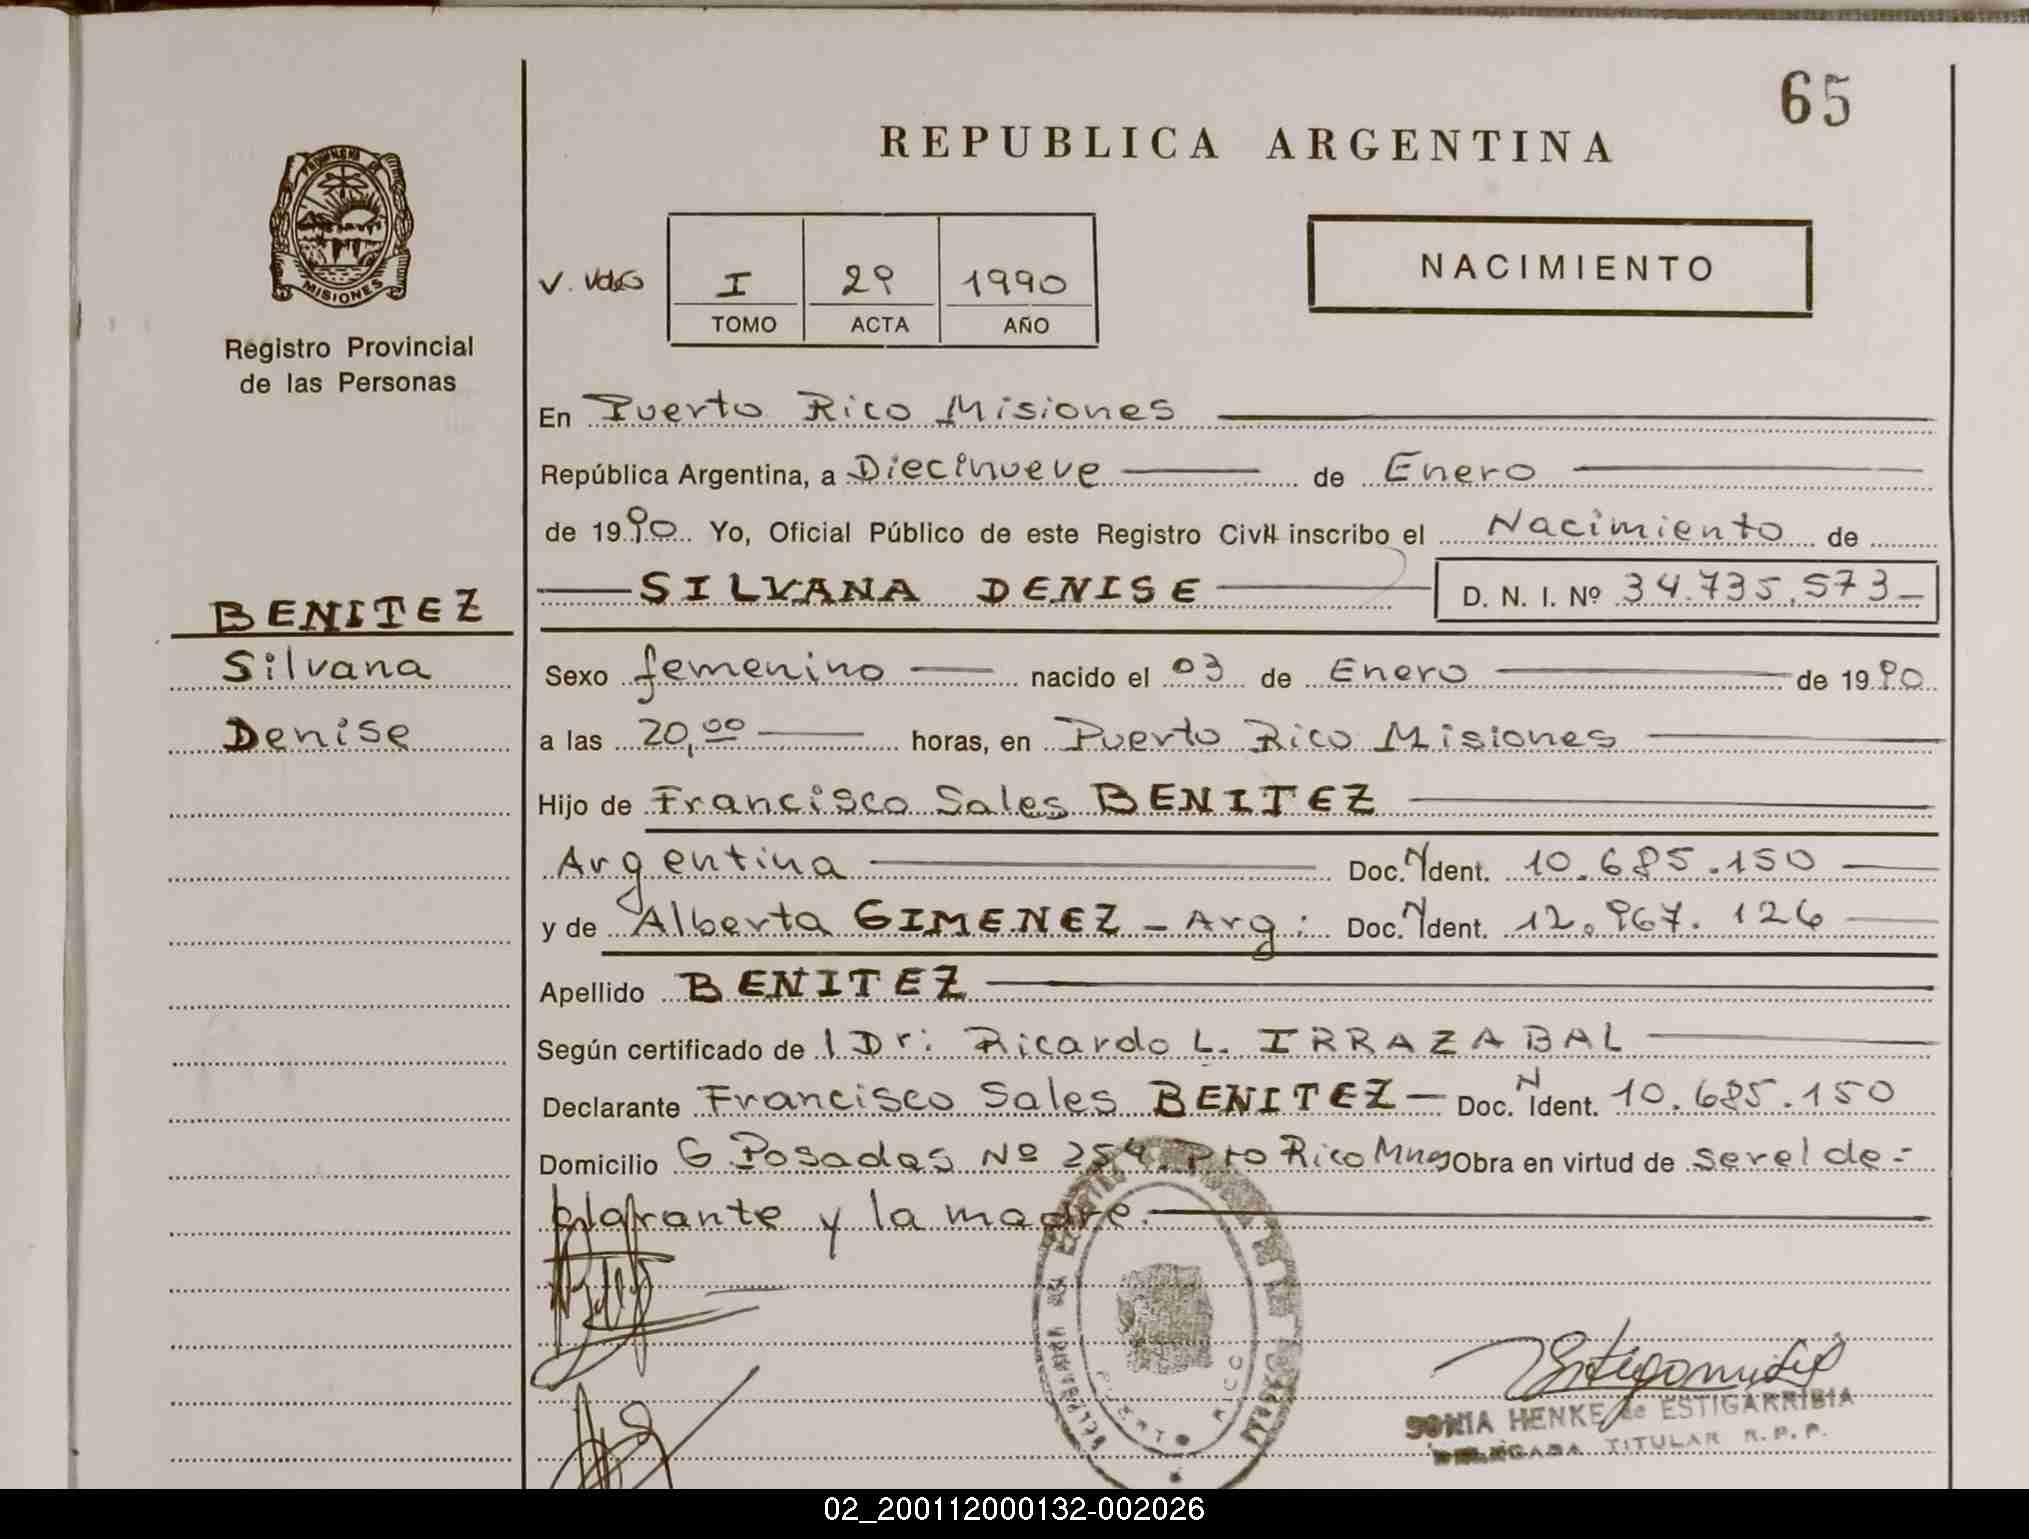 65
REPUBLICA ARGENTINA
PROVINCIA DE
MISIONES
Registro Provincial
de las Personas
V. Vdo
I 29 1990
TOMO ACTA AÑO
NACIMIENTO
En Puerto Rico Misiones
República Argentina, a Diecinueve de Enero
de 1990 Yo, Oficial Público de este Registro Civil inscribo el Nacimiento de
SILVANA DENISE D. N. I. Nº 34.735.573
BENITEZ
Silvana
Denise
Sexo femenino nacido el 03 de Enero de 1990
a las 20,00 horas, en Puerto Rico Misiones
Hijo de Francisco Sales BENITEZ
Argentina Doc. N Ident. 10.685.150
y de Alberta GIMENEZ - Arg: Doc. N Ident. 12.967.126
Apellido BENITEZ
Según certificado de l Dr: Ricardo L. IRRAZABAL
Declarante Francisco Sales BENITEZ Doc. N Ident. 10.685.150
Domicilio G Posadas Nº 254 Pto Rico Mnes Obra en virtud de ser el de-
clarante y la madre.
PUERTO RICO
SONIA HENKE de ESTIGARRIBIA
DELEGADA TITULAR R. P. P.
02_200112000132-002026